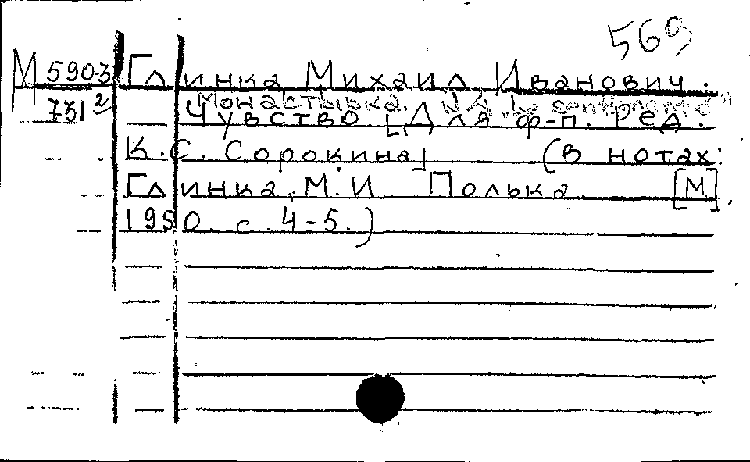 569
М 5903 Глинка Михаил Иванович.
Монастырка.
731² Чувство [Для ф-п. Ред.
К.С. Сорокина] (в нотах:
Глинка, М. И Полька [М],
1950. с. 4-5.)